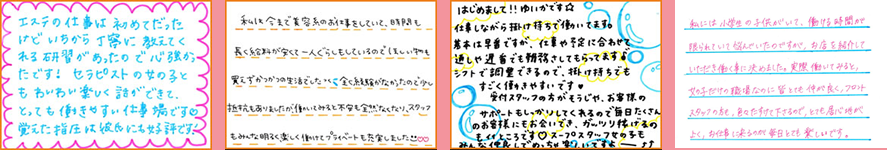 エステの仕事は初めてだった
けどいちから丁寧に教えてく
れる研修があったので心強かっ
たです！セラピストの女の子と
もわいわい楽しく話ができて、
とっても働きやすい仕事場です♡
覚えた指圧は彼氏にも好評です!
私は今まで美容系のお仕事をしていて、時間も
長く給料が安くて一人ぐらしもしているのでほしい物も
買えずかつかつの生活でした 全く経験がなかったので少し
抵抗もありましたが働いてみると不安も全然なくなり、スタッフ
もみんな明るく楽しく働けてプライベートも充実しました!!♡♡
はじめまして!!ゆいかです☆
仕事しながら掛け持ちで働いてます。
基本は早番ですが、仕事や予定に合わせて
通しや遅番でも勤務させてもらってます♪
シフトで調整できるので、掛け持ちでも
すごく働きやすいです♡
受付スタッフの方がもうしや、お客様の
サポートもしっかりしてくれるので毎日たくさん
のお客様にもお会いでき、ガッツリ稼げるの
もイイところです♡
私には小学生の子供がいて、働ける時間が
限られていて悩んでいたのですが、お店を紹介して
いただき働く事に決めました。実際働いてみると、
女の子だけの職場なのに皆とても仲が良く、フロント
スタッフの方も、色々助けて下さるので、とても居心地が
よく、お仕事に来るのが毎日とても楽しいです。